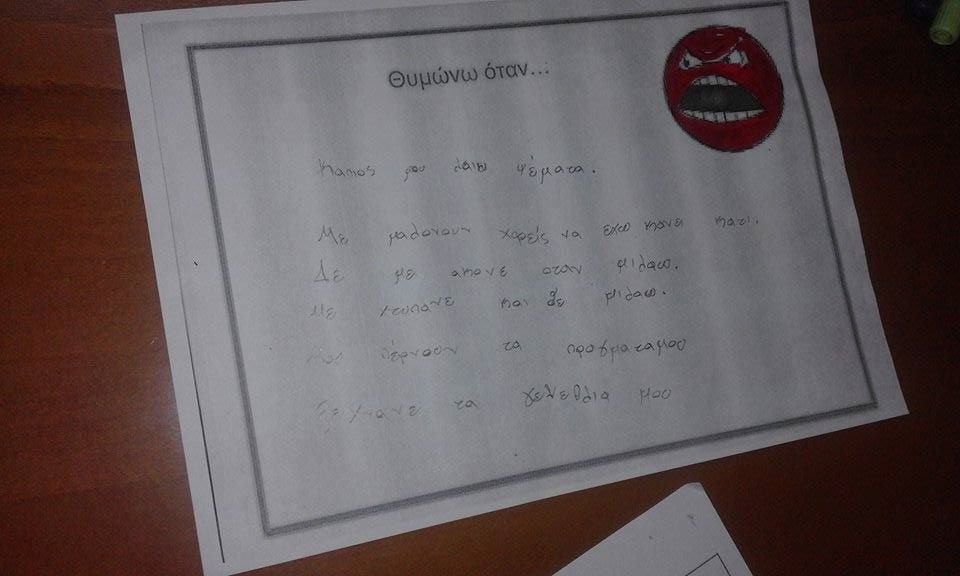 Θυμώνω όταν...
καπος μου λαιει ψέματα.
Με μαλονουν χορείς να εχω κανει κατι.
Δε με ακουνε οταν μιλαω.
Με χτυπανε και δε μιλαω.
Μου πέρνουν τα πραγματαμου
Ξεχνανε τα γενεθλια μου